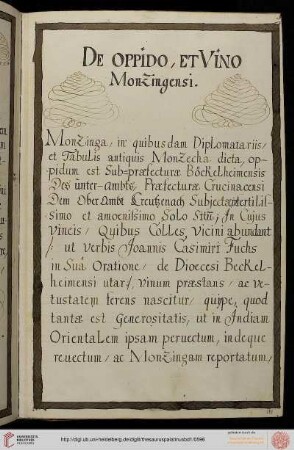 DE OPPIDO, ET VINO
Monzingensi.
Monzinga, in quibusdam Diplomatariis,
et Tabulis antiquis Monzecha dicta, op-
pidum est Sub-præfecturæ Böckelheimensis
Des unter-ambts, Præfecturæ Crucinacensi
Dem Ober Ambt Creutzenach Subjectæ, fertilis-
simo et amoenissimo Solo Situm, In Cujus
vineis, Quibus Colles Vicini abundant
, ut verbis Joannis Casimiri Fuchs
in Suâ Oratione, de Dioecesi Beckel-
heimensi utar, vinum præstans, ac ve-
tustatem ferens nascitur, quippe, quod
tantæ est Generositatis, ut in Indiam
Orientalem ipsam pervectum, indeque
revectum, ac Monzingam reportatum,
http://digi.ub.uni-heidelberg.de/diglit/thesauruspalatinusbd1/0596